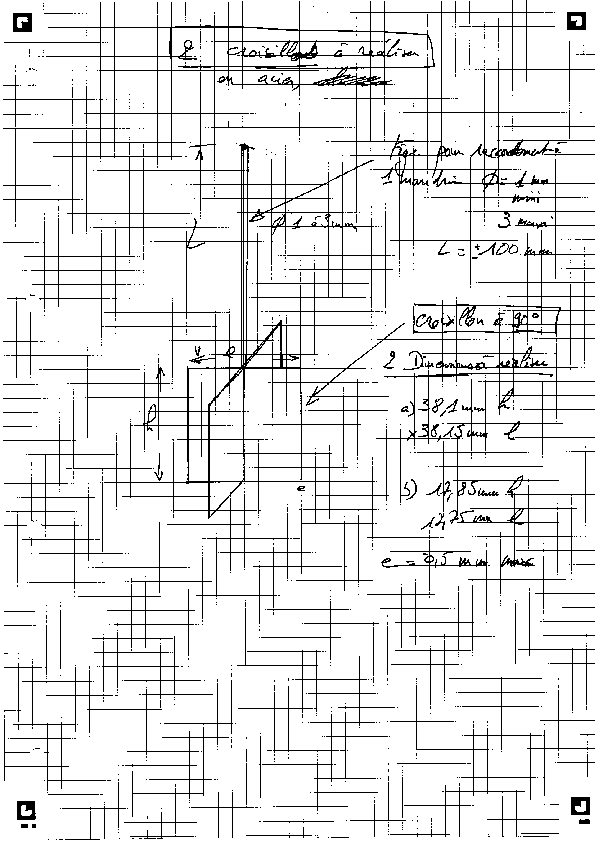 2 croisillons à réaliser
en acier,
Tige pour raccordement à
1 mandrin Ø = 1 mm
mini
3 maxi
L = ± 100 mm
L
Ø 1 à 3 mm
croisillon à 90°
2 Dimensions à réaliser
l
h
a) 38,1 mm h
x 38,15 mm l
e
b) 12,85 mm h
12,75 mm l
e = 0,5 mm maxi